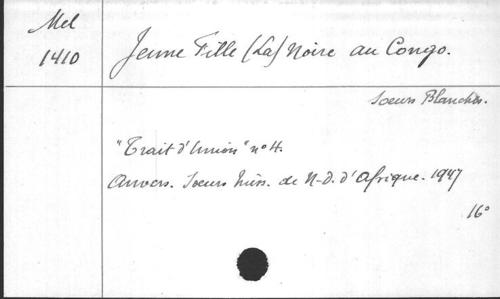 Mel
1410
Jeune Fille (La) Noire au Congo.
Soeurs Blanches.
"Trait d'Union" n° 4.
Anvers. Soeurs Miss. de N-D. d'Afrique. 1947
16°